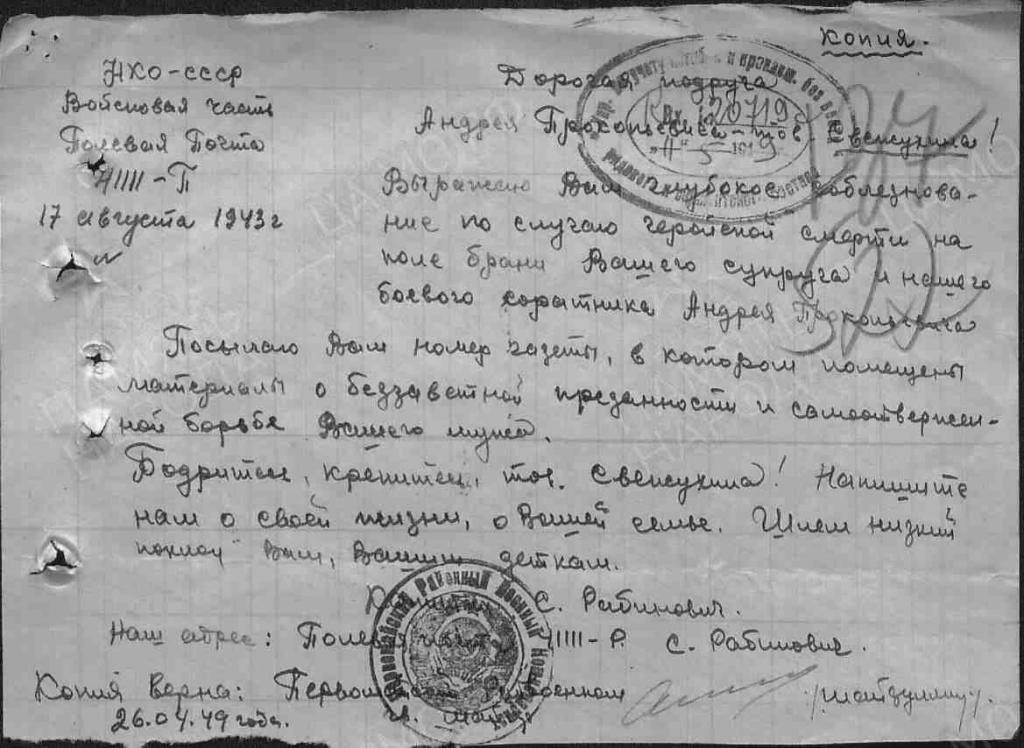 Копия.
НКО-СССР
Войсковая часть
Полевая Почта
41111-П
17 августа 1943 г
Дорогая подруга
Андрея Прокопьевича - тов Свенсухина!
Выражаю Вам глубокое соболезнова-
ние по случаю геройской смерти на
поле брани Вашего супруга и нашего
боевого соратника Андрея Прокопьевича
Посылаю Вам номер газеты, в котором помещены
материалы о беззаветной преданности и самоотвержен-
ной борьбе Вашего мужа.
Бодритесь, крепитесь, тов. Свенсухина! Напишите
нам о своей жизни, о Вашей семье. Шлем низкий
поклон Вам, Вашим деткам.
С. Рабинович.
Наш адрес: Полевая почта 41111-Р. С. Рабинович.
Копия верна:
26.04.49 года.
20719
Районный Военный